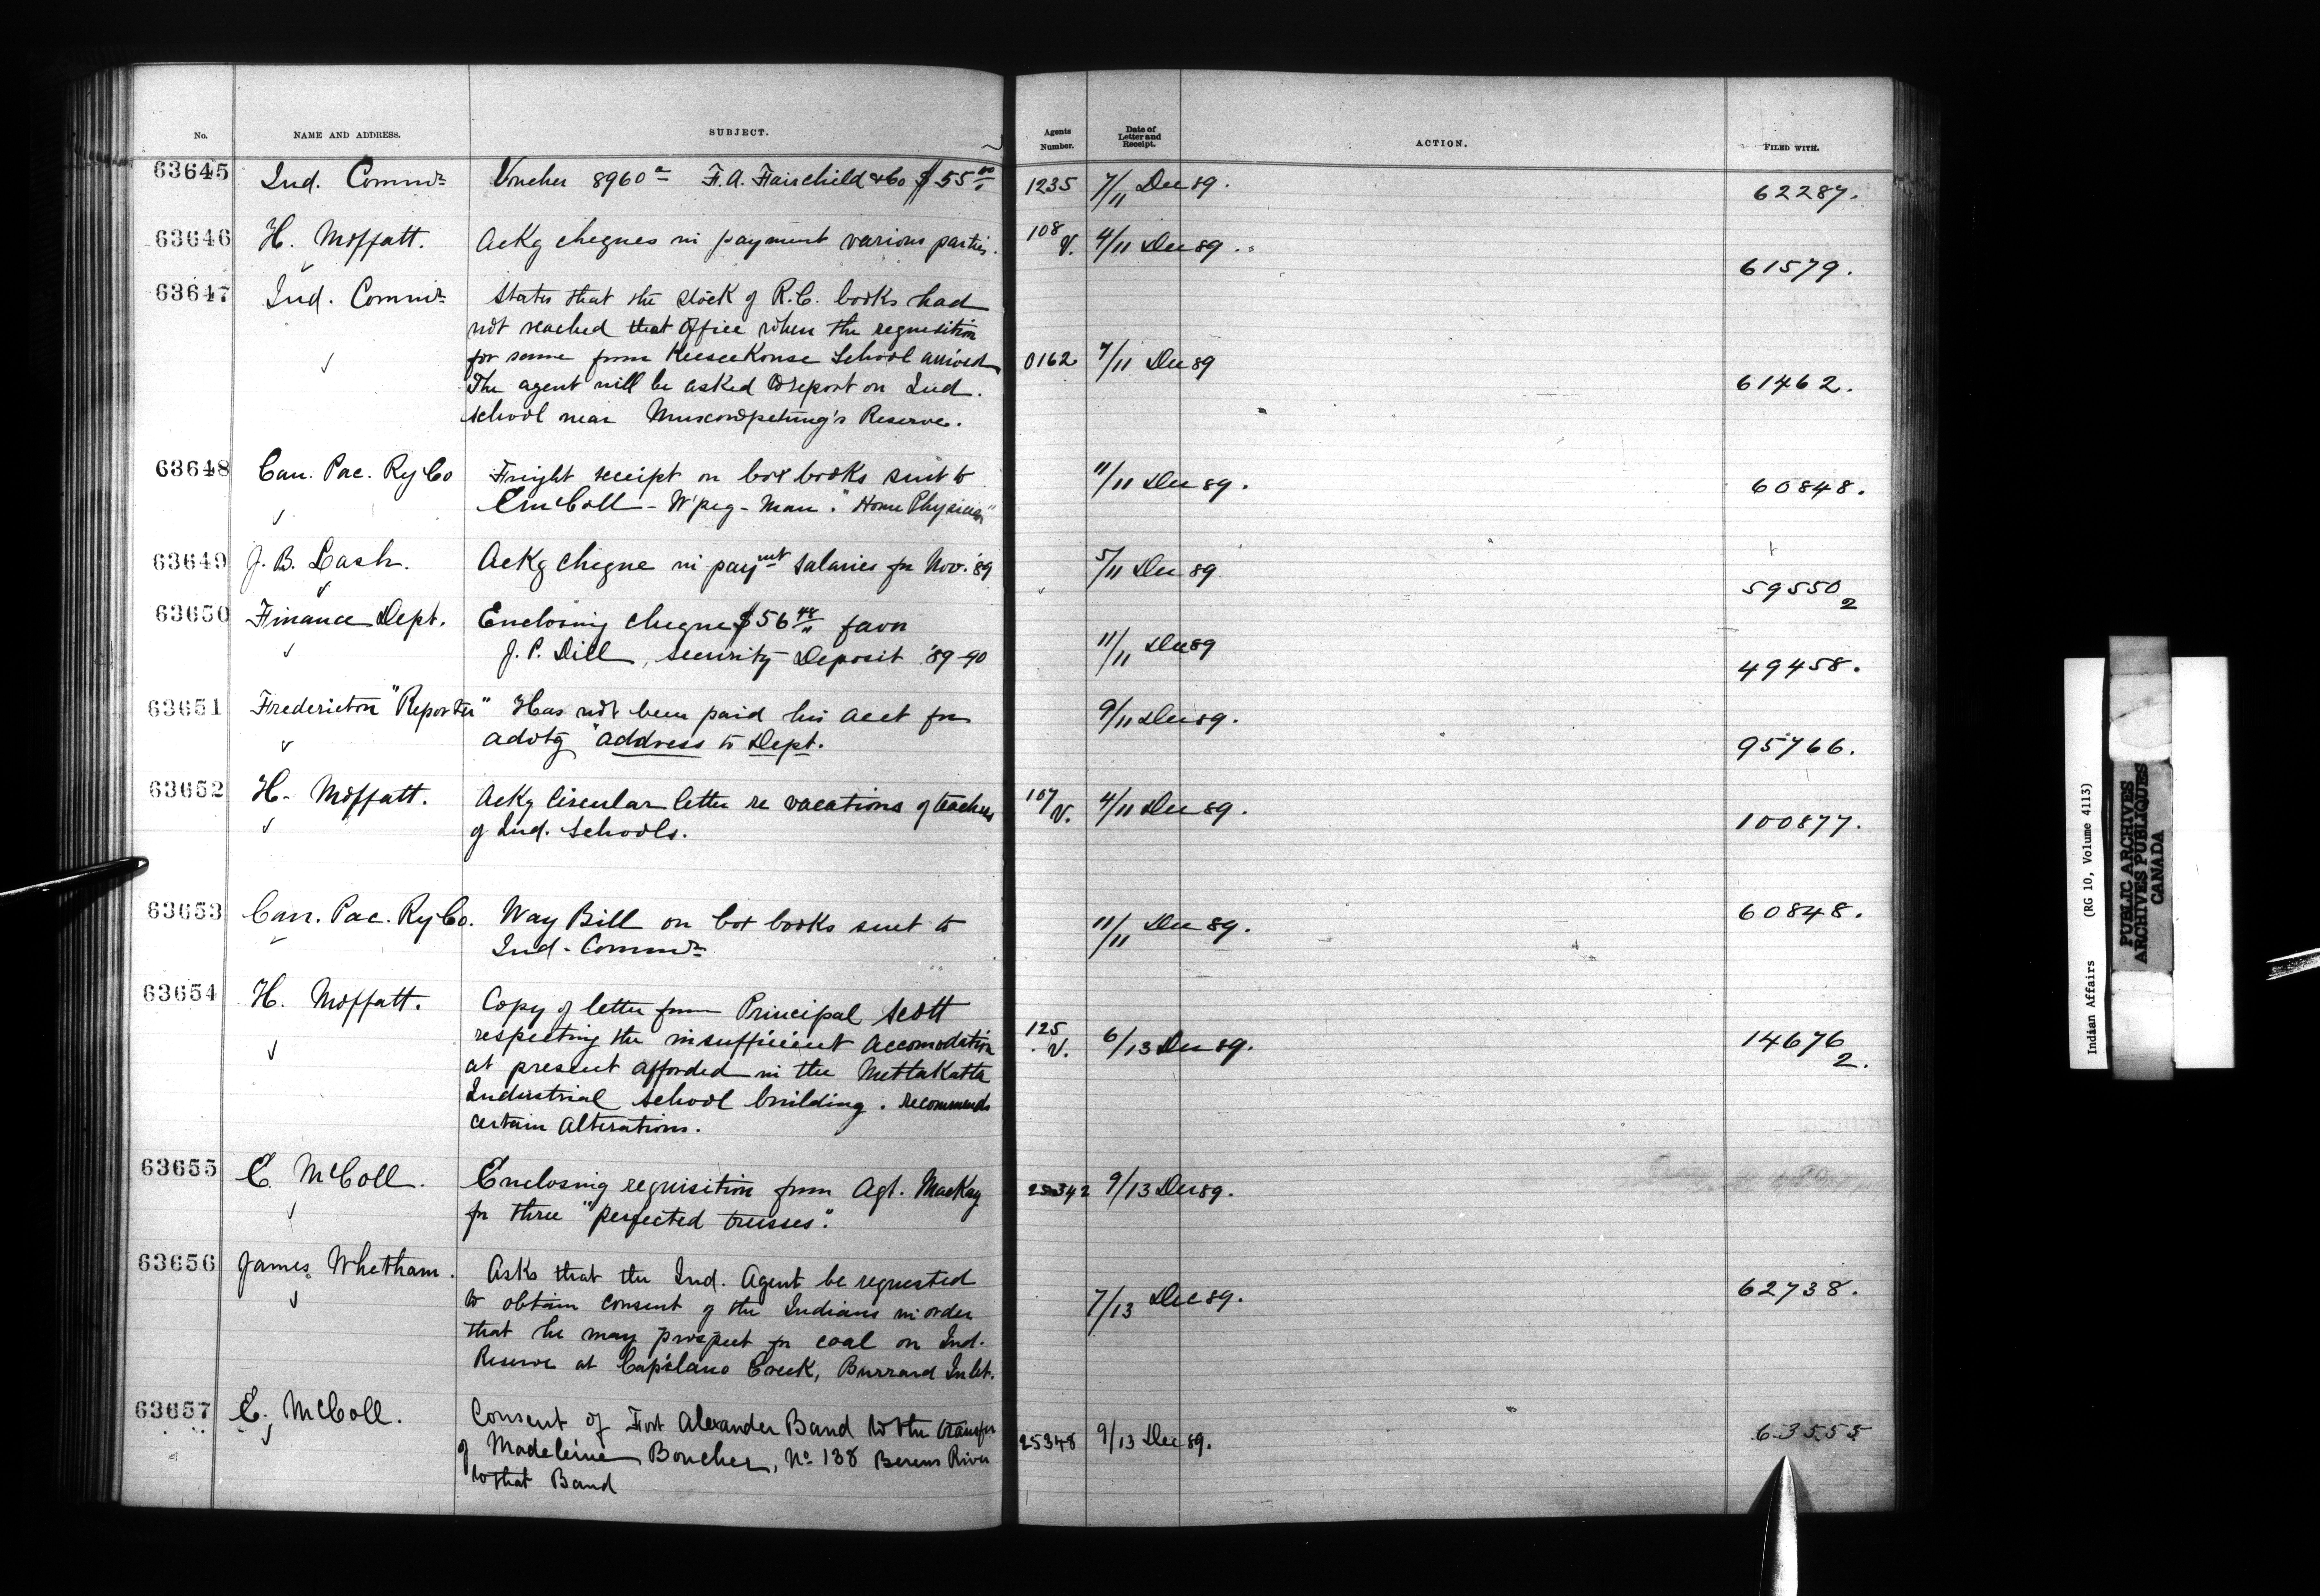 No. NAME AND ADDRESS. SUBJECT. Agents Number. Date of Letter and Receipt. ACTION. FILED WITH.
63645 Ind. Commr. Voucher 8960a F. A. Fairchild & Co $55.00 1235 7/11 Dec 89. 62287.
63646 H. Moffatt. Ackg cheques in payment various parties. 108 V. 4/11 Dec 89. 61579.
63647 Ind. Commr. States that the stock of R.C. books had
not reached that Office when the requisition
for same from Keeseekouse School arrived 0162 7/11 Dec 89
The agent will be asked to report on Ind. 61462.
school near Muscowpetung's Reserve.
63648 Can. Pac. Ry Co Freight receipt on box books sent to 11/11 Dec 89. 60848.
E McColl - W'peg - Man. "Home Physician"
63649 J. B. Lash. Ackg cheque in paymt salaries for Nov. '89 5/11 Dec 89 59550 2
63650 Finance Dept. Enclosing cheque $56 48 favor
J. P. Dill, security Deposit '89-90 11/11 Dec 89 49458.
63651 Fredericton "Reporter" Has not been paid his acct for 9/11 Dec 89.
advtg "address to Dept. 95766.
63652 H. Moffatt. Ackg Circular letter re vacations of teachers 107 V. 4/11 Dec 89.
of Ind. Schools. 100877.
63653 Can. Pac. Ry Co. Way Bill on box books sent to 11/11 Dec 89. 60848.
Ind. Commr.
63654 H. Moffatt. Copy of letter from Principal Scott
respecting the insufficient accomodation 125 V. 6/13 Dec 89. 14676 2.
at present afforded in the Mettakatta
Industrial school building. recommends
certain alterations.
63655 E. McColl. Enclosing requisition from Agt. Mackay 25342 9/13 Dec 89.
for three "perfected trusses".
63656 James Whetham. Asks that the Ind. Agent be requested
to obtain consent of the Indians in order 7/13 Dec 89. 62738.
that he may prospect for coal on Ind.
Reserve at Capilano Creek, Burrard Inlet.
63657 E. McColl. Consent of Fort Alexander Band to the transfer
of Madeleine Boucher, No. 138 Berens River 25348 9/13 Dec 89. 63555
to that Band
Indian Affairs (RG 10, Volume 4113)
PUBLIC ARCHIVES
ARCHIVES PUBLIQUES
CANADA